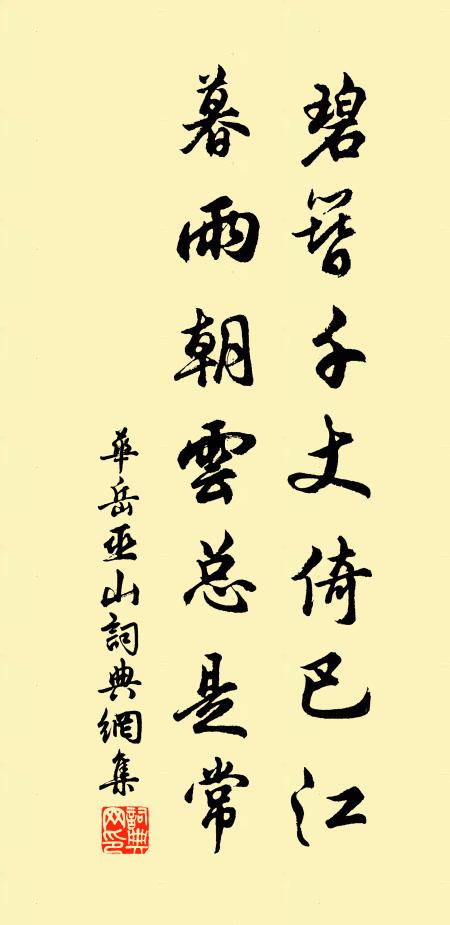 碧簪千丈倚巴江
暮雨朝雲总是常
華岳巫山詞典網集
詞典網印